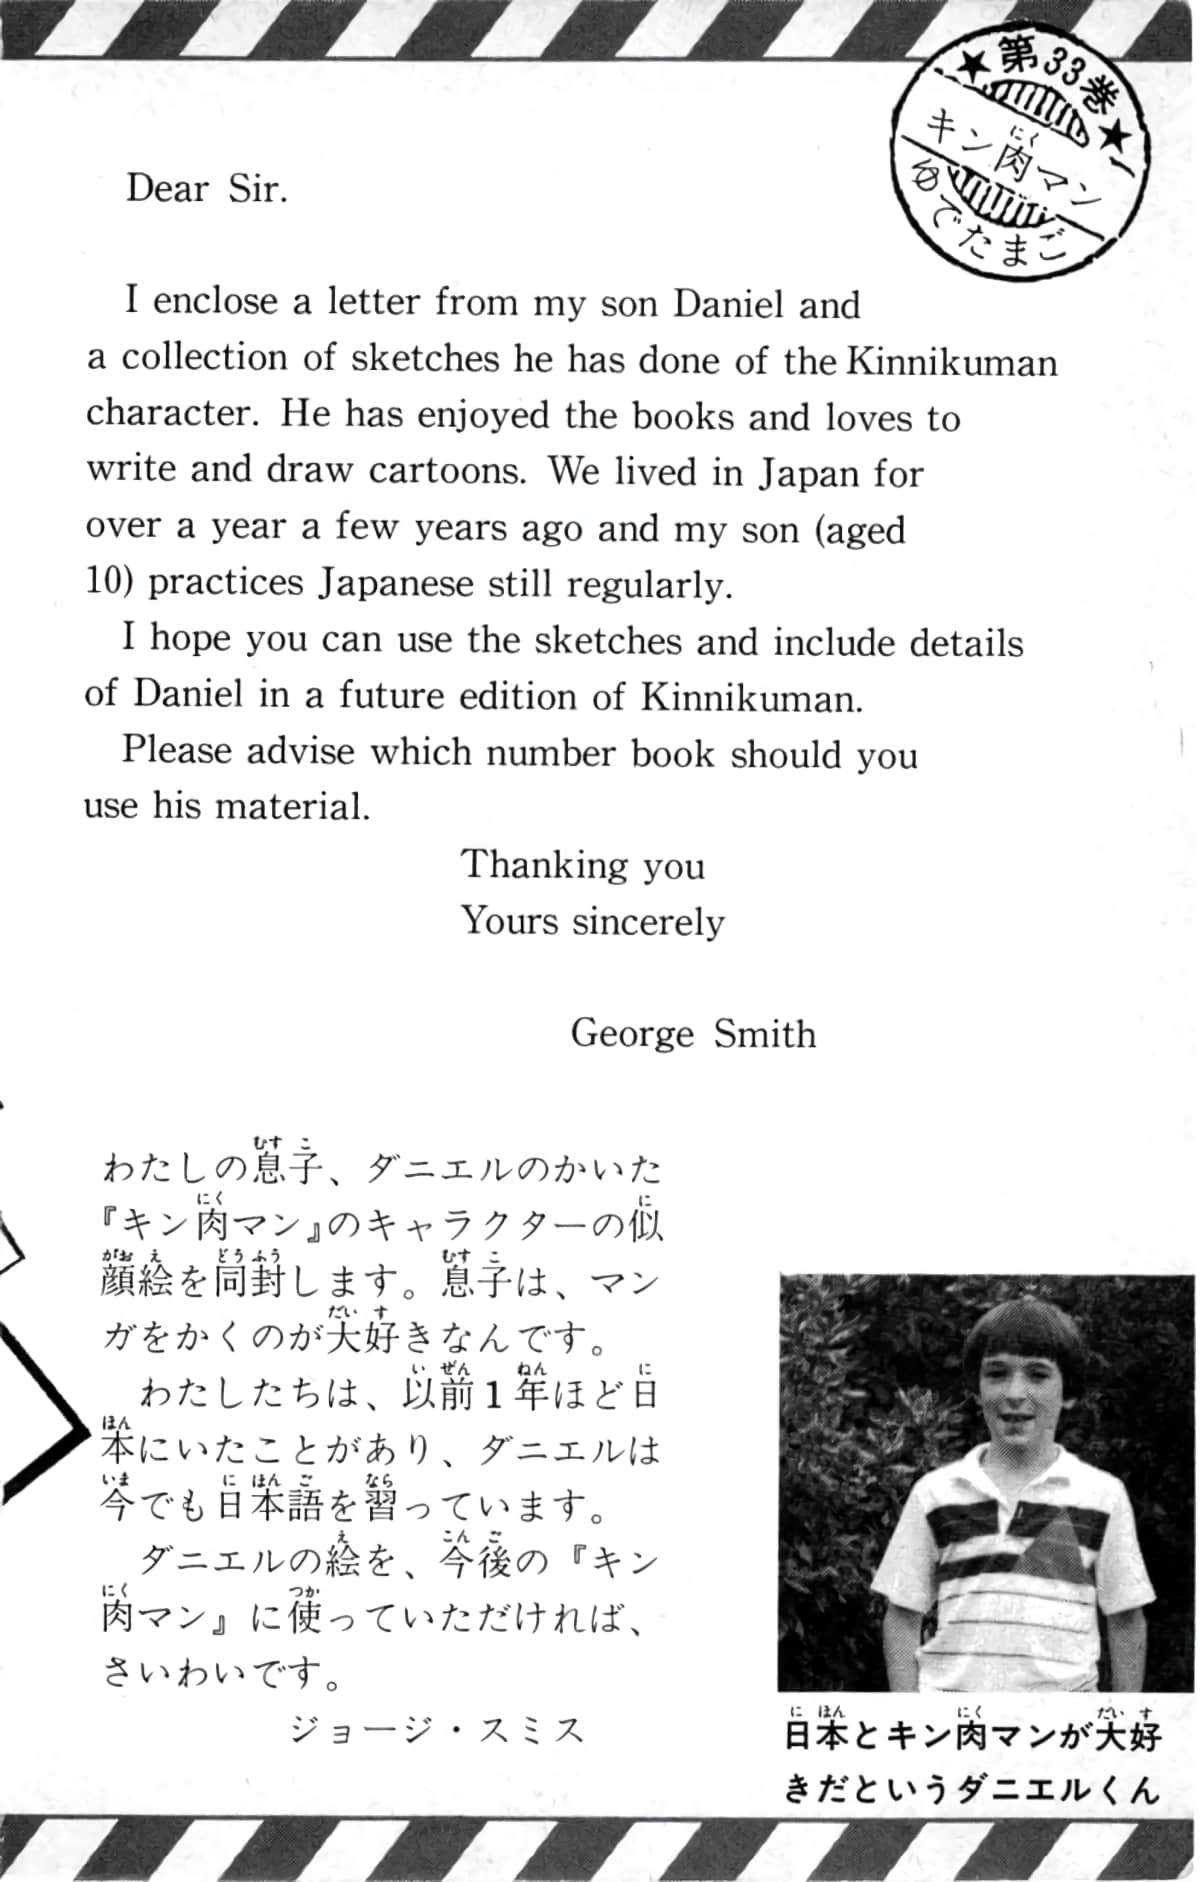 ★第33巻★
キン肉マン
にく
ゆでたまご
Dear Sir.
I enclose a letter from my son Daniel and
a collection of sketches he has done of the Kinnikuman
character. He has enjoyed the books and loves to
write and draw cartoons. We lived in Japan for
over a year a few years ago and my son (aged
10) practices Japanese still regularly.
I hope you can use the sketches and include details
of Daniel in a future edition of Kinnikuman.
Please advise which number book should you
use his material.
Thanking you
Yours sincerely
George Smith
むす こ
わたしの息子、ダニエルのかいた
にく に
『キン肉マン』のキャラクターの似
がお え どう ふう むす こ
顔絵を同封します。息子は、マン
だい す
ガをかくのが大好きなんです。
い ぜん ねん に
わたしたちは、以前1年ほど日
ほん
本にいたことがあり、ダニエルは
いま に ほん ご なら
今でも日本語を習っています。
え こん ご
ダニエルの絵を、今後の『キン
にく つか
肉マン』に使っていただければ、
さいわいです。
ジョージ・スミス
に ほん にく だい す
日本とキン肉マンが大好
きだというダニエルくん